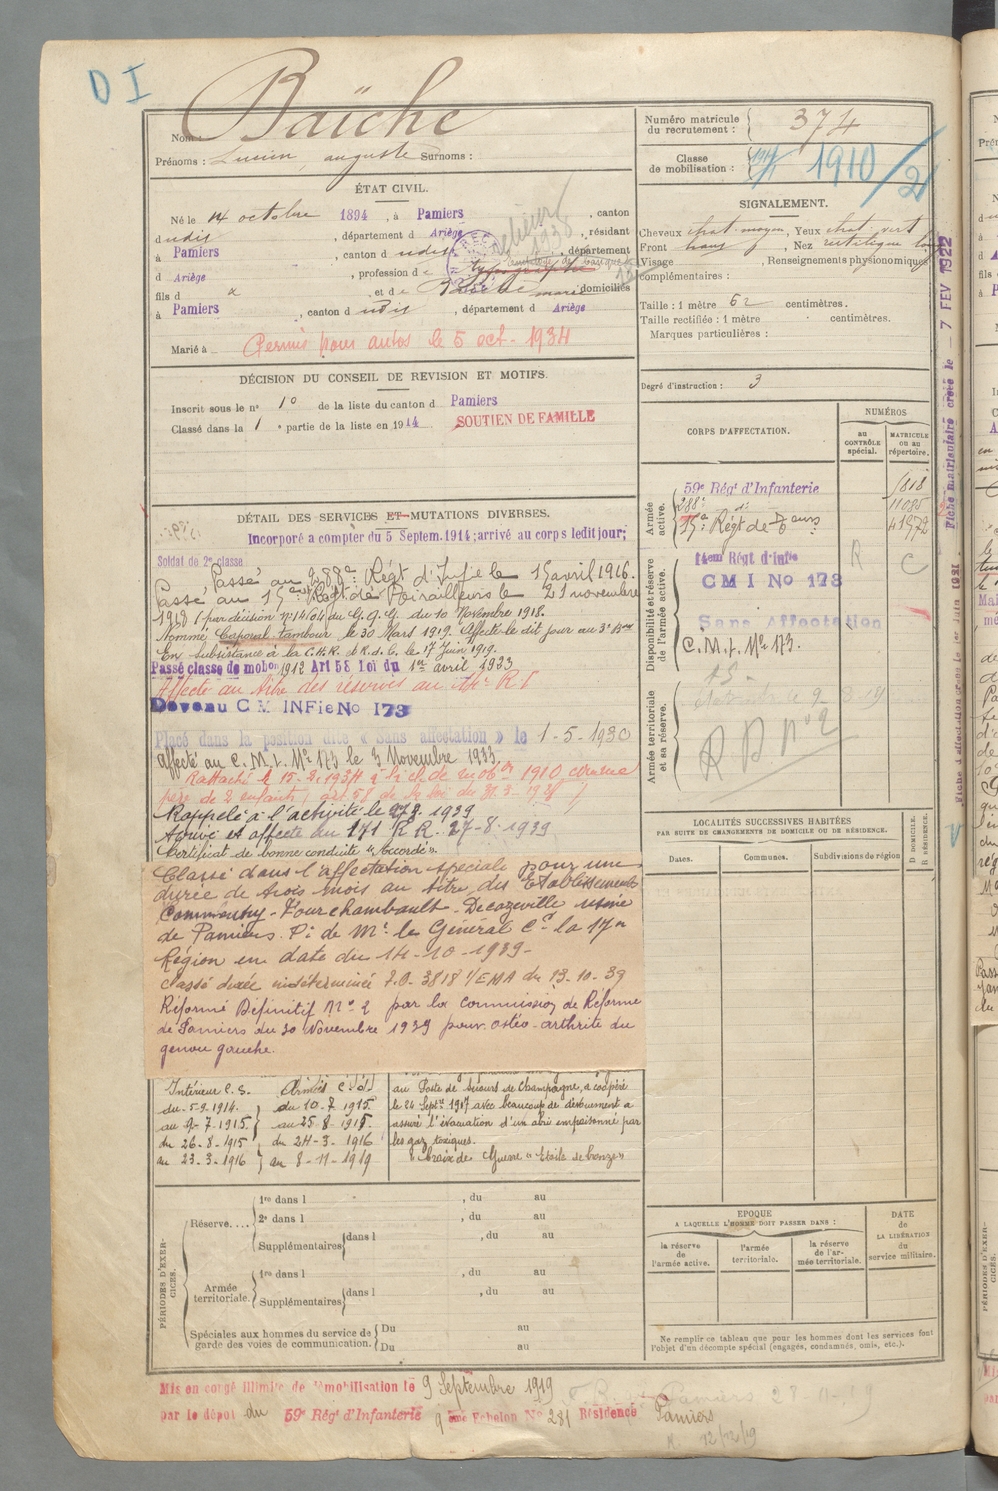 D I
Nom : Baïche
Prénoms : Lucien auguste Surnoms :
Numéro matricule du recrutement : 374
Classe de mobilisation : 1910/2
ÉTAT CIVIL.
Né le 14 octobre 1894, à Pamiers, canton
dudit, département d Ariège, résidant
à Pamiers, canton dudit, département
d Ariège, profession de
fils d x et de domiciliés
à Pamiers, canton dudit, département d Ariège
Marié à
Permis pour autos le 5 oct. 1934
SIGNALEMENT.
Cheveux chat. moyen, Yeux chat. vert
Front , Nez rectiligne
Visage , Renseignements physionomiques
complémentaires :
Taille : 1 mètre 62 centimètres.
Taille rectifiée : 1 mètre centimètres.
Marques particulières :
Degré d'instruction : 3
DÉCISION DU CONSEIL DE REVISION ET MOTIFS.
Inscrit sous le n° 10 de la liste du canton d Pamiers
Classé dans la 1 e partie de la liste en 1914 SOUTIEN DE FAMILLE
DÉTAIL DES SERVICES ET MUTATIONS DIVERSES.
Incorporé à compter du 5 Septem. 1914; arrivé au corps ledit jour;
Soldat de 2e classe
Passé au 288e Régt d'Infie le 15 avril 1916.
Passé au 15e Régt de Tirailleurs le 21 novembre
1918 (par décision n° 14164 du G.Q.G. du 10 Novembre 1918.
Nommé Caporal tambour le 30 Mars 1919. Affecté le dit jour au 3e Bon
En subsistance à la C.H.R. le 17 Juin 1919.
Passé classe de mobon 1912 Art 58 loi du 1er avril 1923
Affecté au titre des réserves au 14e R I
Devenu C M INFie No 173
Placé dans la position dite « Sans affectation » le 1-5-1930
affecté au C.M.I. No 173 le 3 Novembre 1933.
Rattaché le 15-2-1934 à la cl. de mobon 1910 comme
père de 2 enfants (art 58 de la loi du 31.3.1928)
Rappelé à l'activité le 1939
Arrivé et affecté au 171 R R. 27-8-1939
Certificat de bonne conduite « Accordé ».
Classé dans l'affectation spéciale pour une
durée de trois mois au titre des Etablissements
Commentry-Fourchambault-Decazeville usine
de Pamiers. Pi de Mr le Général Ct la 17e
Région en date du 14-10-1939-
classé durée indéterminée I.O. 3818 1/EMA du 13-10-39
Réformé Définitif No 2 par la commission de Réforme
de Pamiers du 20 Novembre 1939 pour ostéo-arthrite du
genou gauche.
Intérieur C.S.
du 5-9-1914.
au 9-7-1915.
du 26-8-1915
au 23-3-1916
Armées C.d.
du 10-7-1915.
au 25-8-1915.
du 24-3-1916
au 8-11-1919
au Poste de secours de Champagne, a coopéré
le 24 Septre 1917 avec beaucoup de dévouement a
assuré l'évacuation d'un abri empoisonné par
les gaz toxiques.
Croix de Guerre « Etoile de bronze »
CORPS D'AFFECTATION.
NUMÉROS
au CONTRÔLE spécial.
MATRICULE ou au répertoire.
Armée active.
59e Régt d'Infanterie
288e
15e Régt de
11085
41972
Disponibilité et réserve de l'armée active.
14em Régt d'Infie R C
CMI No 173
Sans Affectation
C.M.I. No 173.
Armée territoriale et sa réserve.
R.D. no 2
LOCALITÉS SUCCESSIVES HABITÉES
PAR SUITE DE CHANGEMENTS DE DOMICILE OU DE RÉSIDENCE.
Dates. Communes. Subdivisions de région D. DOMICILE. R. RÉSIDENCE.
PÉRIODES D'EXERCICES.
Réserve.... 1re dans l , du au
2e dans l , du au
Supplémentaires dans l , du au
Armée territoriale. 1re dans l , du au
Supplémentaires dans l , du au
Spéciales aux hommes du service de garde des voies de communication. Du au
Du au
EPOQUE
A LAQUELLE L'HOMME DOIT PASSER DANS :
la réserve de l'armée active.
l'armée territoriale.
la réserve de l'armée territoriale.
DATE de LA LIBÉRATION du service militaire.
Ne remplir ce tableau que pour les hommes dont les services font
l'objet d'un décompte spécial (engagés, condamnés, omis, etc.).
Mis en congé illimité de démobilisation le 9 Septembre 1919
par le dépôt du 59e Régt d'Infanterie 9 ème Echelon No 281 Résidence Pamiers
Fiche matriculaire créée le - 7 FEV 1922